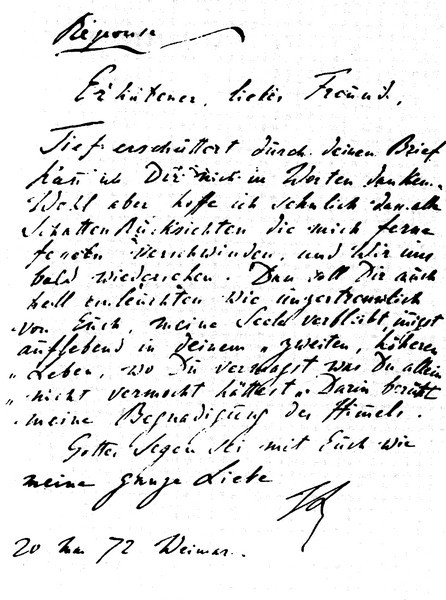 Réponse
Erhabener, lieber Freund,
Tief erschüttert durch deinen Brief
kan ich Dir nicht in Worten danken.
Wohl aber hoffe ich sehnlich dass alle
Schatten Rücksichten die mich ferne
verschwinden, und Wir uns
bald wiedersehen. Dan soll Dir auch
hell einleuchten wie ungertrennlich
von Euch, meine Seele verbleibt innigst
auflebend in deinem „zweiten, höheren
„Leben, wo Du vermagst was Du allein
„nicht vermocht hättest„. Darin beruht
meine Begnadigung des Himels.
Gottes Segen sei mit Euch wie
meine ganze Liebe
20 Mai 72 Weimar.